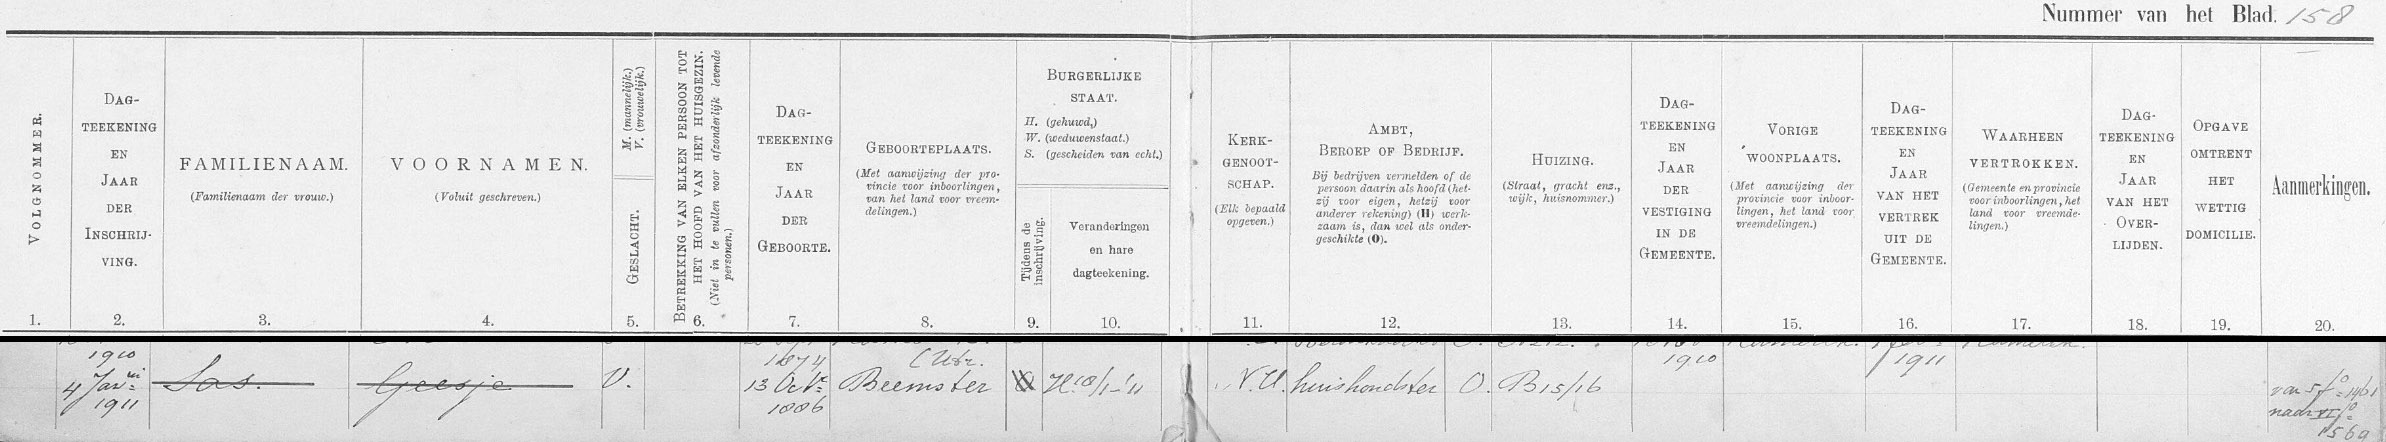 Nummer van het Blad. 158
VOLGNOMMER.
DAG-
TEEKENING
EN
JAAR
DER
INSCHRIJ-
VING.
FAMILIENAAM.
(Familienaam der vrouw.)
VOORNAMEN.
(Voluit geschreven.)
M. (mannelijk.)
V. (vrouwelijk.)
GESLACHT.
BETREKKING VAN ELKEN PERSOON TOT
HET HOOFD VAN HET HUISGEZIN.
(Niet in te vullen voor afzonderlijk levende
personen.)
DAG-
TEEKENING
EN
JAAR
DER
GEBOORTE.
GEBOORTEPLAATS.
(Met aanwijzing der pro-
vincie voor inboorlingen,
van het land voor vreem-
delingen.)
BURGERLIJKE
STAAT.
H. (gehuwd,)
W. (weduwenstaat.)
S. (gescheiden van echt.)
Tijdens de
inschrijving.
Veranderingen
en hare
dagteekening.
KERK-
GENOOT-
SCHAP.
(Elk bepaald
opgeven.)
AMBT,
BEROEP OF BEDRIJF.
Bij bedrijven vermelden of de
persoon daarin als hoofd (het-
zij voor eigen, hetzij voor
anderer rekening) (H) werk-
zaam is, dan wel als onder-
geschikte (O).
HUIZING.
(Straat, gracht enz.,
wijk, huisnommer.)
DAG-
TEEKENING
EN
JAAR
DER
VESTIGING
IN DE
GEMEENTE.
VORIGE
WOONPLAATS.
(Met aanwijzing der
provincie voor inboor-
lingen, het land voor
vreemdelingen.)
DAG-
TEEKENING
EN
JAAR
VAN HET
VERTREK
UIT DE
GEMEENTE.
WAARHEEN
VERTROKKEN.
(Gemeente en provincie
voor inboorlingen, het
land voor vreemde-
lingen.)
DAG-
TEEKENING
EN
JAAR
VAN HET
OVER-
LIJDEN.
OPGAVE
OMTRENT
HET
WETTIG
DOMICILIE.
Aanmerkingen.
1. 2. 3. 4. 5. 6. 7. 8. 9. 10. 11. 12. 13. 14. 15. 16. 17. 18. 19. 20.
1910 1874 (Utr. 1910 1911
4 Janri 1911 Sas. Geesje V. 13 Octr 1886 Beemster H. 18/1-'11 N.H. huishoudster O. B15/16
naar
1569